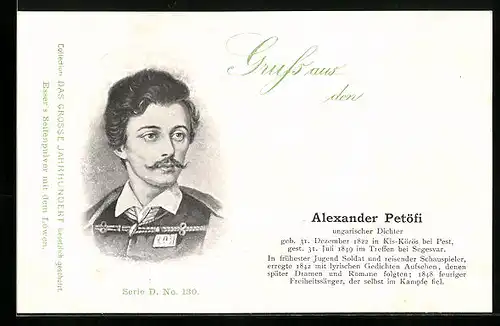 Gruss aus
den
Collection: DAS GROSSE JAHRHUNDERT gesetzlich geschützt.
Esser's Seifenpulver mit dem Löwen.
Serie D. No. 130.
Alexander Petöfi
ungarischer Dichter
geb. 31. Dezember 1822 in Kis-Körös bei Pest,
gest. 31. Juli 1849 im Treffen bei Segesvar.
In frühester Jugend Soldat und reisender Schauspieler,
erregte 1842 mit lyrischen Gedichten Aufsehen, denen
später Dramen und Romane folgten; 1848 feuriger
Freiheitssänger, der selbst im Kampfe fiel.